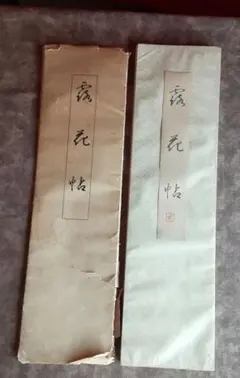 露花帖
露花帖